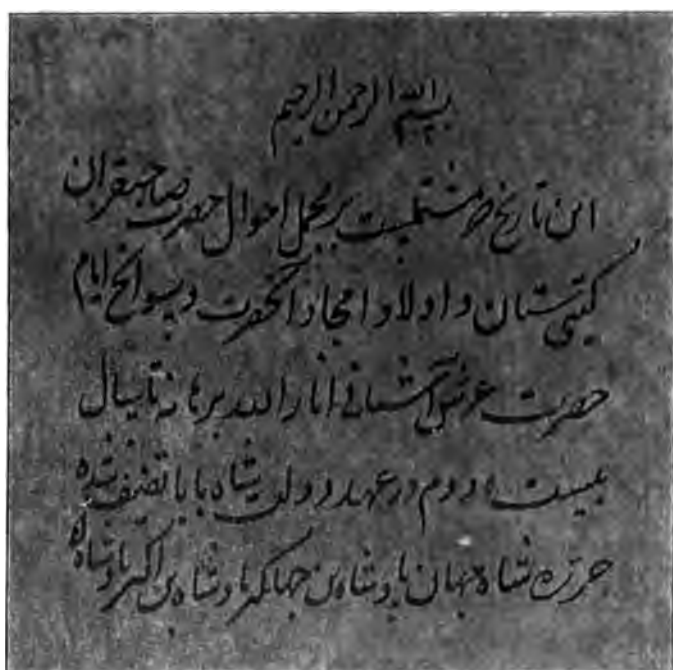 بسم الله الرحمن الرحيم
این تاریخ که مشتملست بر مجمل احوال حضرت صاحبقران
گیتی ستان و اولاد امجاد آنحضرت و سوانح ایام
حضرت عرش آشیانی انار الله برهانه تا سال
بیست و دوم در عهد دولت شاه بابا تصنیف شده
حرره شاه جهان پادشاه بن جهانگیر پادشاه بن اکبر پادشاه